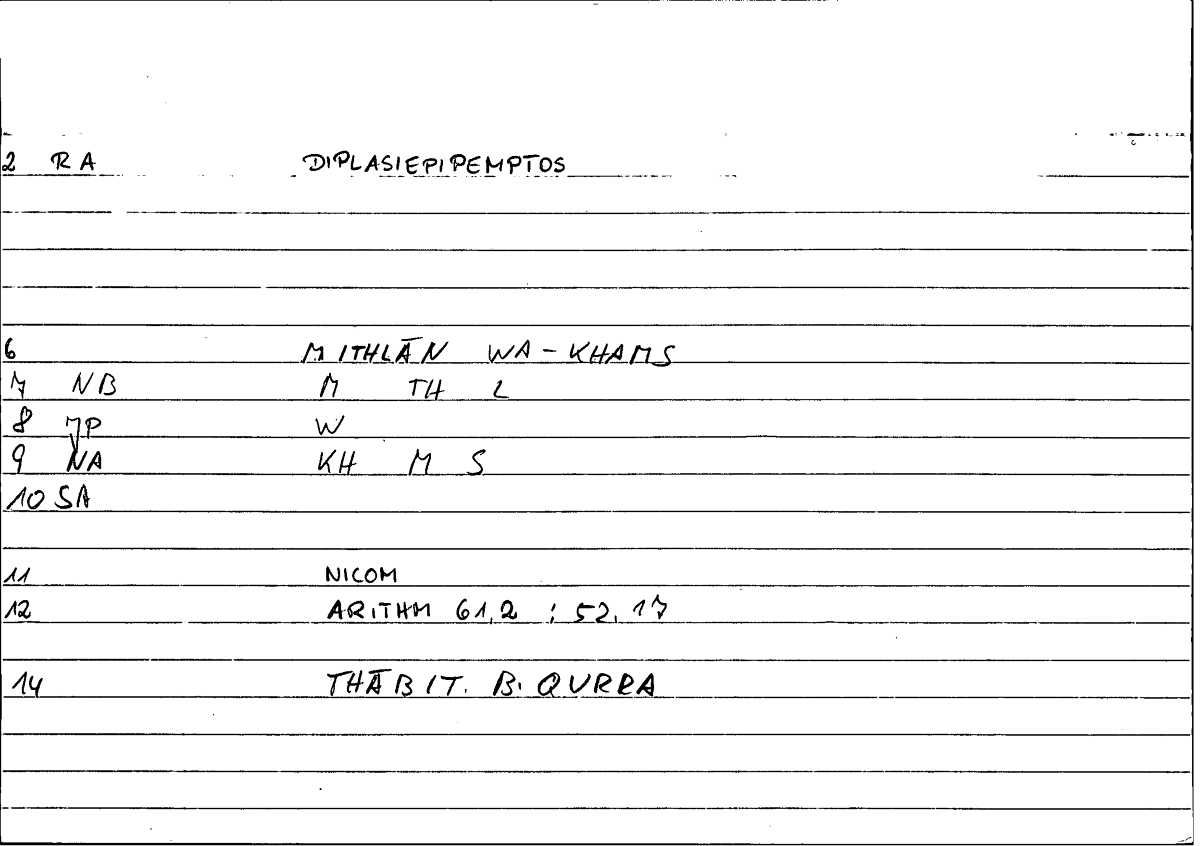 2 RA DIPLASIEPIPEMPTOS
6 MITHLĀN WA-KHAMS
7 NB M TH L
8 JP W
9 NA KH M S
10 SA
11 NICOM
12 ARITHM 61,2 : 52,17
14 THĀBIT. B. QURRA